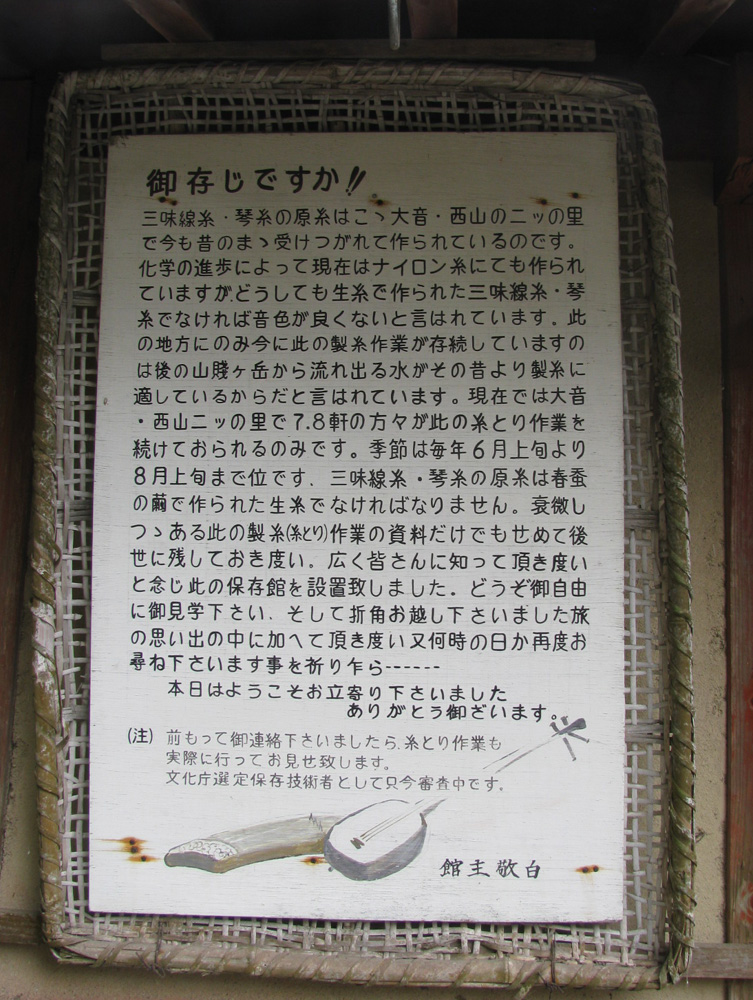 御存じですか!!
三味線糸・琴糸の原糸はこゝ大音・西山の二ッの里
で今も昔のまゝ受けつがれて作られているのです。
化学の進歩によって現在はナイロン糸にても作られ
ていますが、どうしても生糸で作られた三味線糸・琴
糸でなければ音色が良くないと言はれています。此
の地方にのみ今に此の製糸作業が存続していますの
は後の山賤ヶ岳から流れ出る水がその昔より製糸に
適しているからだと言はれています。現在では大音
・西山二ッの里で7.8軒の方々が此の糸とり作業を
続けておられるのみです。季節は毎年6月上旬より
8月上旬まで位です、三味線糸・琴糸の原糸は春蚕
の繭で作られた生糸でなければなりません。衰微し
つゝある此の製糸(糸とり)作業の資料だけでもせめて後
世に残しておき度い。広く皆さんに知って頂き度い
と念じ此の保存館を設置致しました。どうぞ御自由
に御見学下さい、そして折角お越し下さいました旅
の思い出の中に加へて頂き度い又何時の日か再度お
尋ね下さいます事を祈り乍ら------
本日はようこそお立寄り下さいました
ありがとう御ざいます。
(注) 前もって御連絡下さいましたら、糸とり作業も
実際に行ってお見せ致します。
文化庁選定保存技術者として只今審査中です。
館主敬白